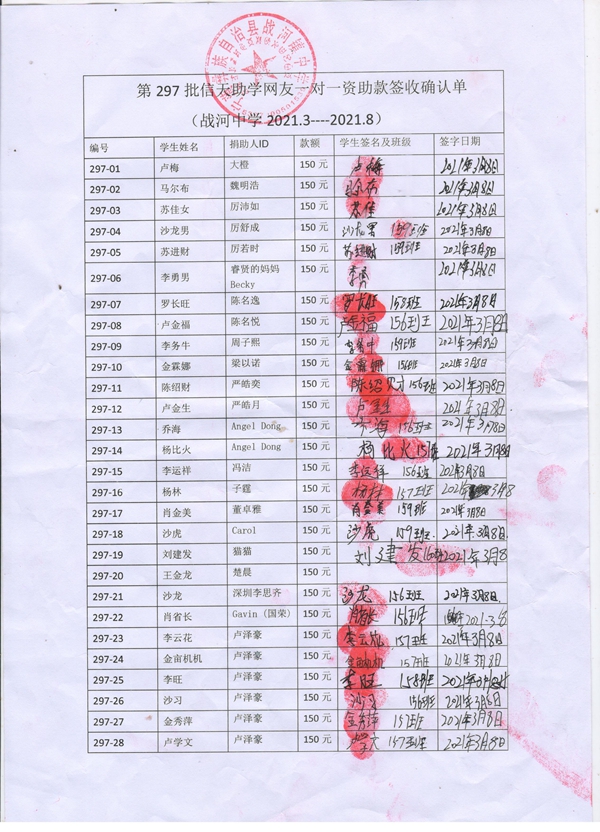 族自治县战河镇中学
第 297 批信天助学网友一对一资助款签收确认单
（战河中学 2021.3----2021.8）
编号 学生姓名 捐助人ID 款额 学生签名及班级 签字日期
297-01 卢梅 大橙 150 元 卢梅 2021年3月8日
297-02 马尔布 魏明浩 150 元 2021年3月8日
297-03 苏佳女 厉沛如 150 元 苏佳 2021年3月8日
297-04 沙龙男 厉舒成 150 元 沙龙男 159班 2021年3月8日
297-05 苏进财 厉若时 150 元 苏进财 159班 2021年3月8日
297-06 李勇男 睿贤的妈妈 150 元 李勇 2021年3月8日
Becky
297-07 罗长旺 陈名逸 150 元 罗长旺 158班 2021年3月8日
297-08 卢金福 陈名悦 150 元 卢金福 156班 2021年3月8日
297-09 李务牛 周子熙 150 元 159班 2021年3月8日
297-10 金霖娜 梁以诺 150 元 金霖娜 156班 2021年3月8日
297-11 陈绍财 严皓奕 150 元 陈绍财 156班 2021年3月8日
297-12 卢金生 严皓月 150 元 卢金生 2021年3月8日
297-13 乔海 Angel Dong 150 元 乔海 156班 2021年3月8日
297-14 杨比火 Angel Dong 150 元 杨比火 157班 2021年3月8日
297-15 李运祥 冯洁 150 元 李运祥 156班 2021年3月8日
297-16 杨林 子霆 150 元 杨林 157班 2021年3月8
297-17 肖金美 董卓雅 150 元 肖金美 159班 2021年3月8日
297-18 沙虎 Carol 150 元 沙虎 159班 2021年3月8日
297-19 刘建发 猫猫 150 元 刘建发 2021年3月8
297-20 王金龙 楚晨 150 元
297-21 沙龙 深圳李思齐 150 元 沙龙 156班 2021年3月8日
297-22 肖省长 Gavin (国荣) 150 元 肖省长 156班 2021.3.8
297-23 李云花 卢泽豪 150 元 李云花 157班 2021年3月8日
297-24 金亩机机 卢泽豪 150 元 金亩机机 157班 2021年3月8日
297-25 李旺 卢泽豪 150 元 李旺 158班 2021年3月8日
297-26 沙习 卢泽豪 150 元 沙习 156班 2021年3月8日
297-27 金秀萍 卢泽豪 150 元 金秀萍 157班 2021年3月8日
297-28 卢学文 卢泽豪 150 元 卢学文 157班 2021年3月8日